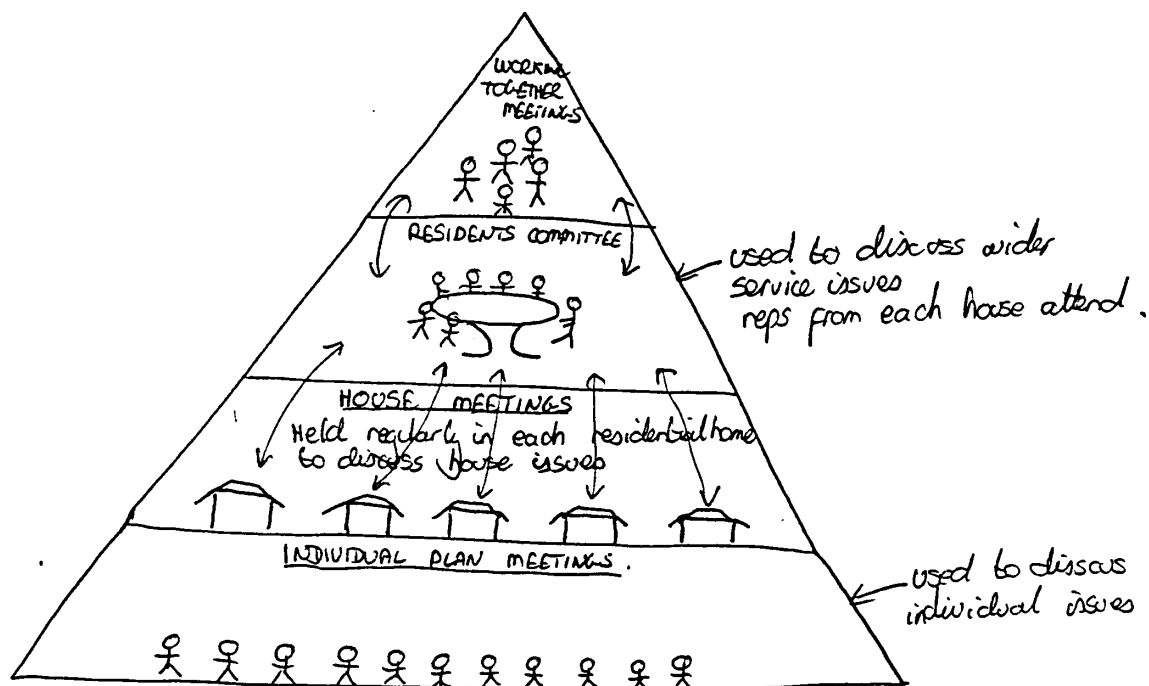 WORKING
TOGETHER
MEETINGS
RESIDENTS COMMITTEE
used to discuss wider
service issues
reps from each house attend.
HOUSE MEETINGS
Held regularly in each residential home
to discuss house issues
INDIVIDUAL PLAN MEETINGS.
used to discuss
individual issues